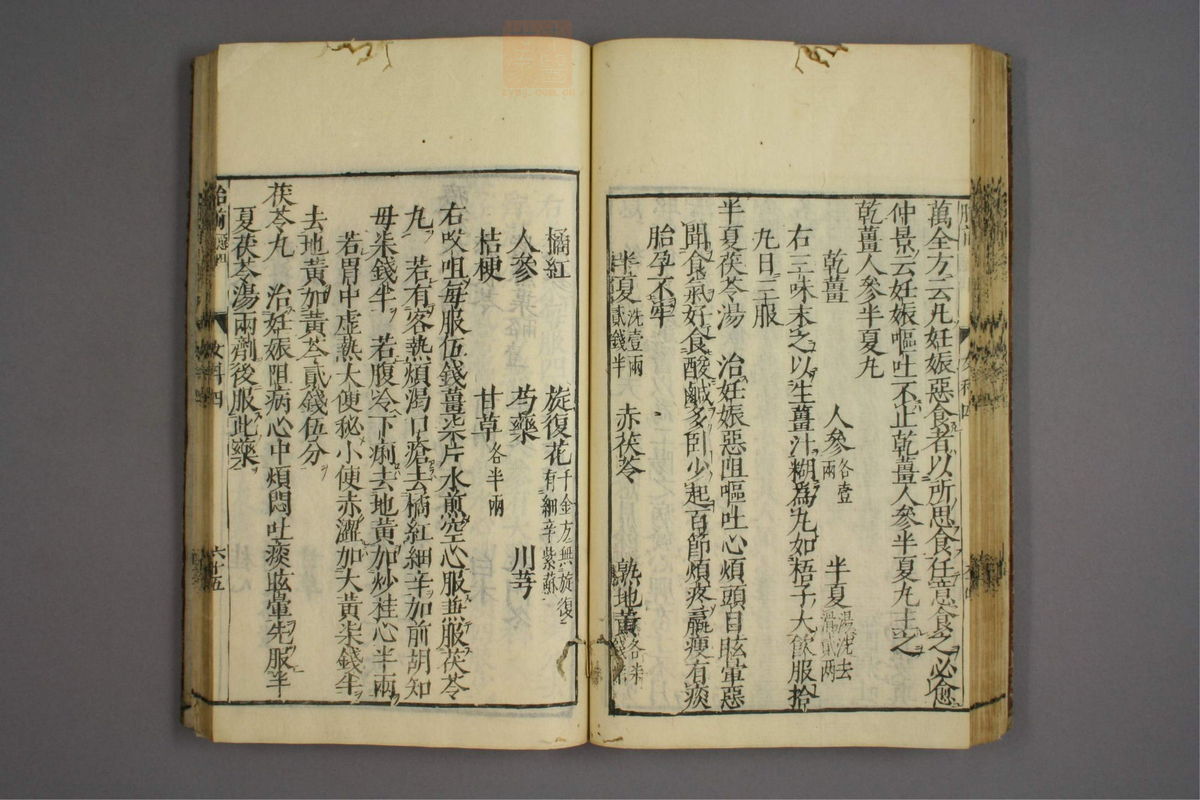 萬全方云凡妊娠惡食者以所思食任意食之必愈
仲景云妊娠嘔吐不止乾薑人參半夏丸主之
乾薑人參半夏丸
乾薑 人參各壹兩 半夏湯洗去滑貳兩
右三味末之以生薑汁糊為丸如梧子大飲服拾
丸日三服
半夏茯苓湯 治妊娠惡阻嘔吐心煩頭目眩暈惡
聞食氣好食酸鹹多臥少起百節煩疼羸瘦有痰
胎孕不牢
半夏洗壹兩貳錢半 赤茯苓 乾地黃
橘紅 旋復花千金方無旋復有細辛紫蘇
人參 芍藥 川芎
桔梗 甘草各半兩
右㕮咀每服伍錢薑柒片水煎空心服兼服茯苓
丸 若有客熱煩渴口瘡去橘紅細辛加前胡知
毋柒錢半 若腹冷下痢去地黃加炒桂心半兩
若胃中虛熱大便秘小便赤澀加大黃柒錢半
去地黃加黃芩貳錢伍分
茯苓丸 治妊娠阻病心中煩悶吐痰眩暈先服半
夏茯苓湯兩劑後服此藥
女科四
六十五